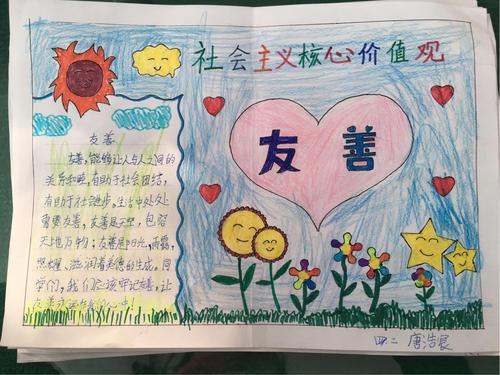 社会主义核心价值观
友善
友善
友善,能够让人与人之间的
关系和睦,有助于社会团结,
有助于社会进步。生活中处处
需要友善,友善是天空,包容
天地万物;友善是阳光,雨露,
照耀、滋润着美德的生成,同
学们,我们应该牢记友善,让
四.二 唐浩宸